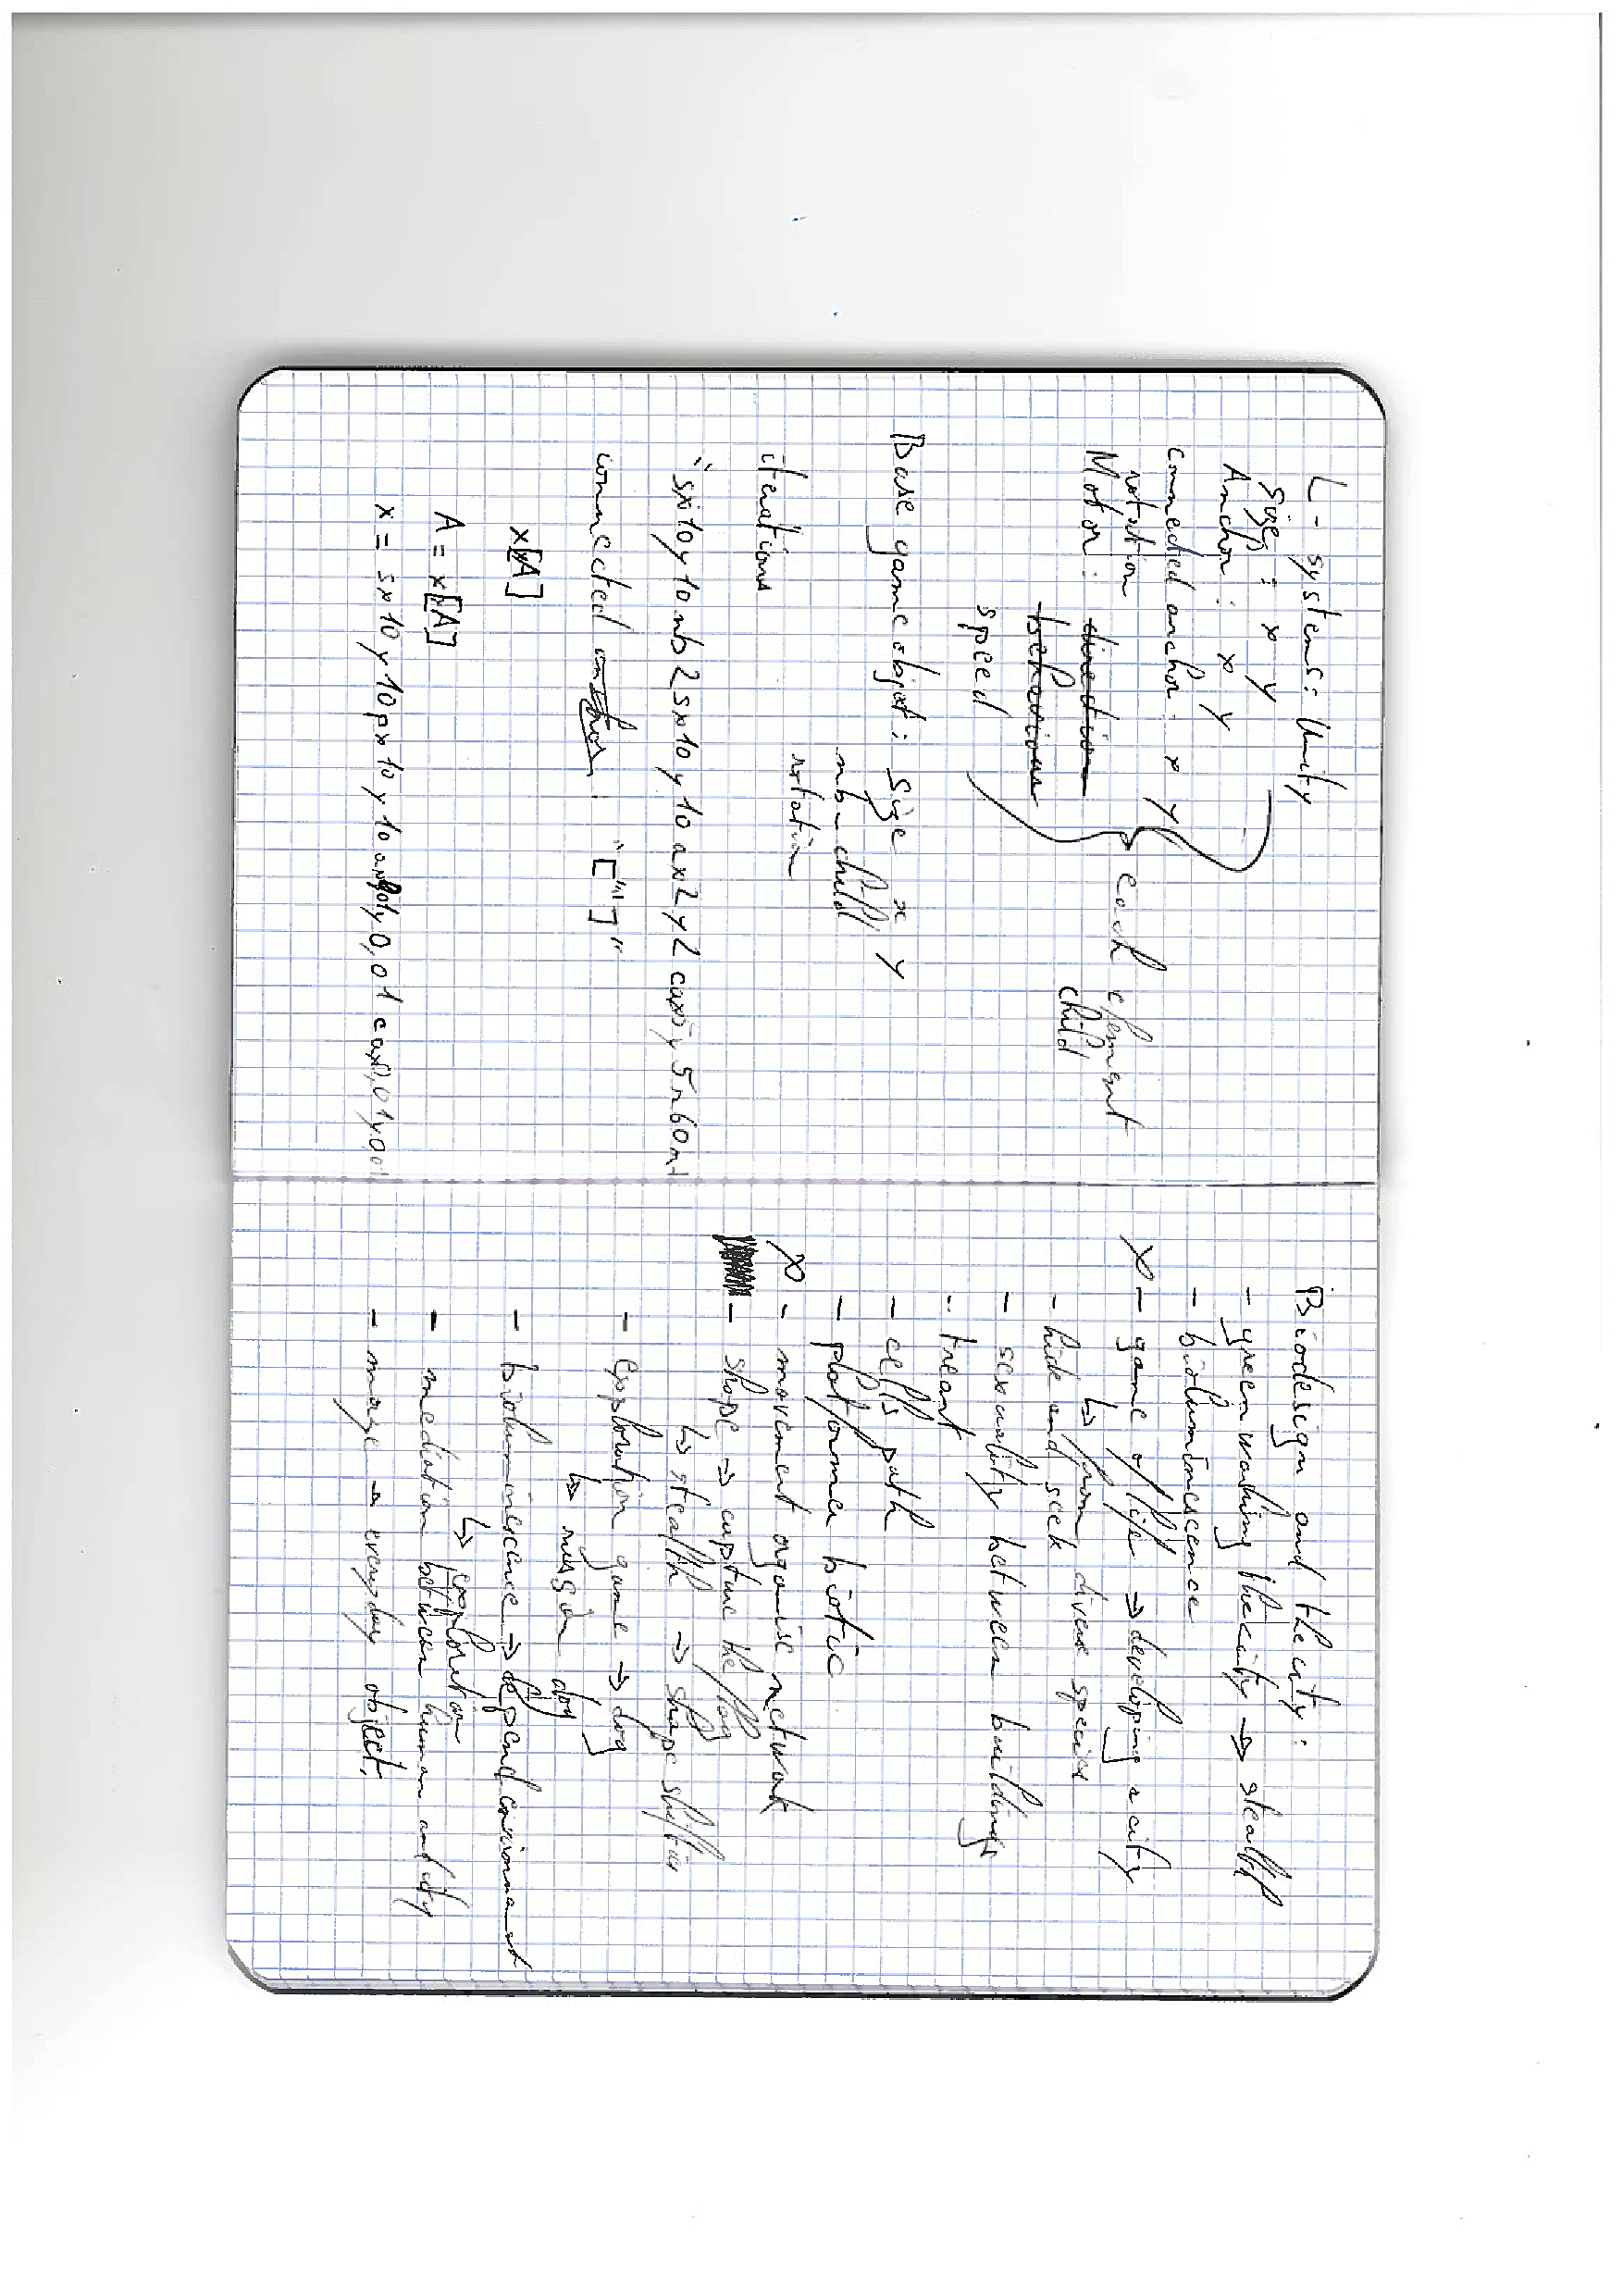 L-systems: Unity
Size: x y
Anchor: x y
connected anchor: x y
rotation
Motor: direction
behaviour
speed
each element
child
Base game object: size x y
nb-child
rotation
iterations
"sx10y10nb2sx10y10ax2y2cax5y5r60m1
connected anchor: "[""]"
x[A]
A = x[A]
x = sx10y10px10y10a 0,01 cax0,01y0,01
Biodesign and the city:
- green washing the city → stealth
- bioluminescence
X - game of life → developing a city
↳ from diverse species
- hide and seek
- sexuality between buildings
- treant
- cells path
- platformer biotic
X - movement organise network
- shape → capture the flag
↳ stealth → shape shifter
- exploration game → dog
↳ dog
- bioluminescence → depend environment
- mediation between human and city
↳ exploration
- maze → everyday object